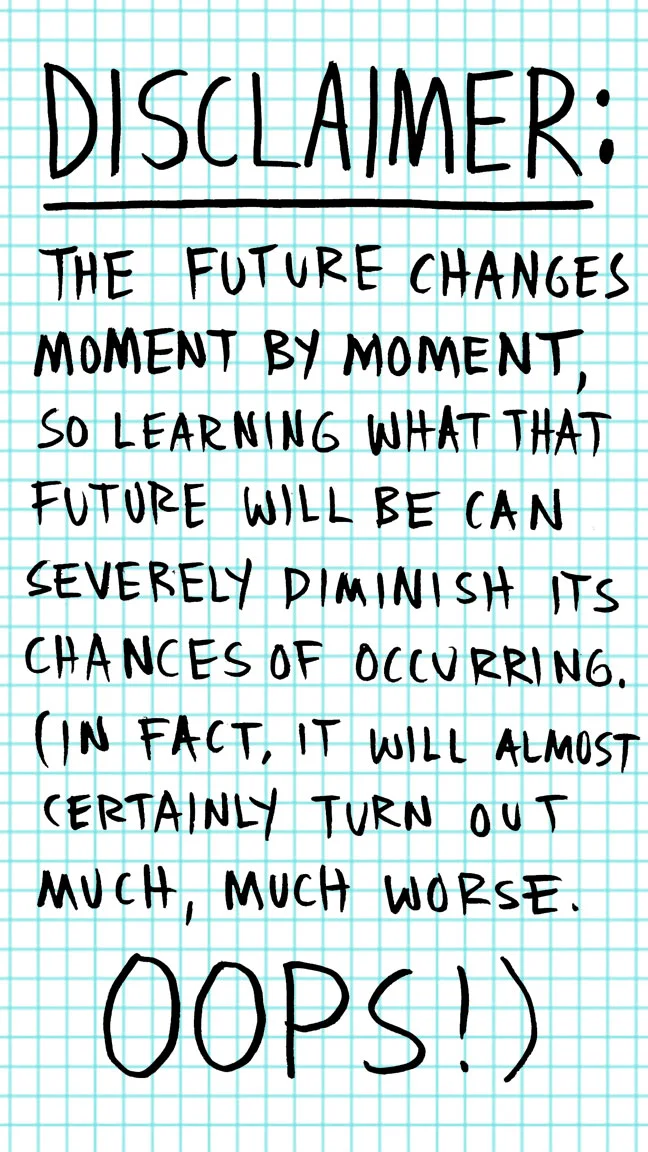 DISCLAIMER:
THE FUTURE CHANGES
MOMENT BY MOMENT,
SO LEARNING WHAT THAT
FUTURE WILL BE CAN
SEVERELY DIMINISH ITS
CHANCES OF OCCURRING.
(IN FACT, IT WILL ALMOST
CERTAINLY TURN OUT
MUCH, MUCH WORSE.
OOPS!)